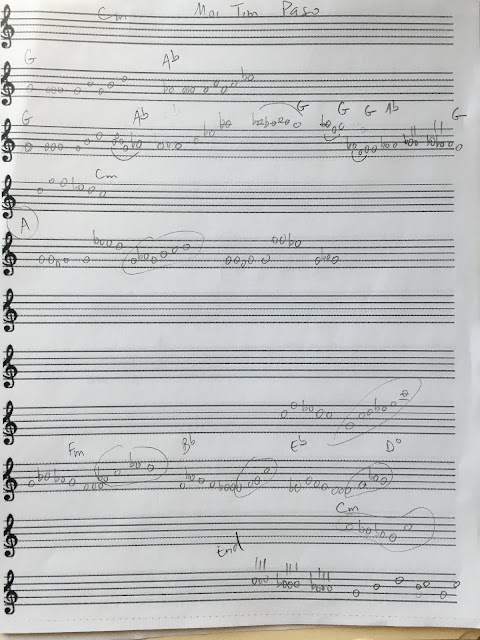 Cm Moi Tim Paso
G Ab
G Ab G G G Ab G
Cm
A
Fm Bb Eb D°
Cm
End